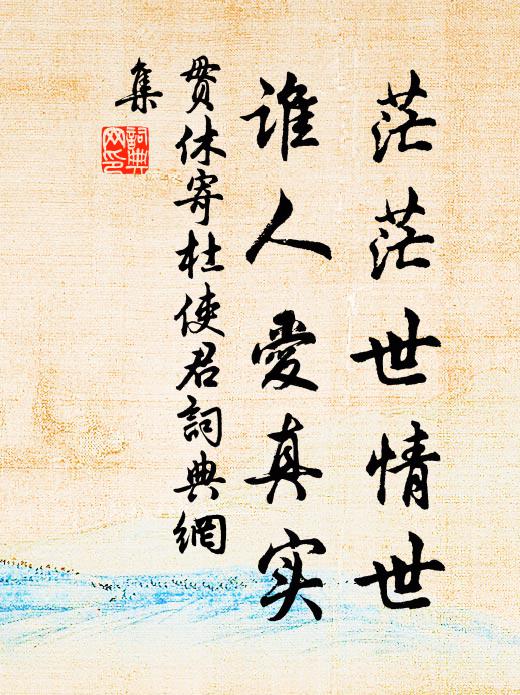 茫茫世情世
谁人爱真实
贯休寄杜使君词典網
集
詞典网印